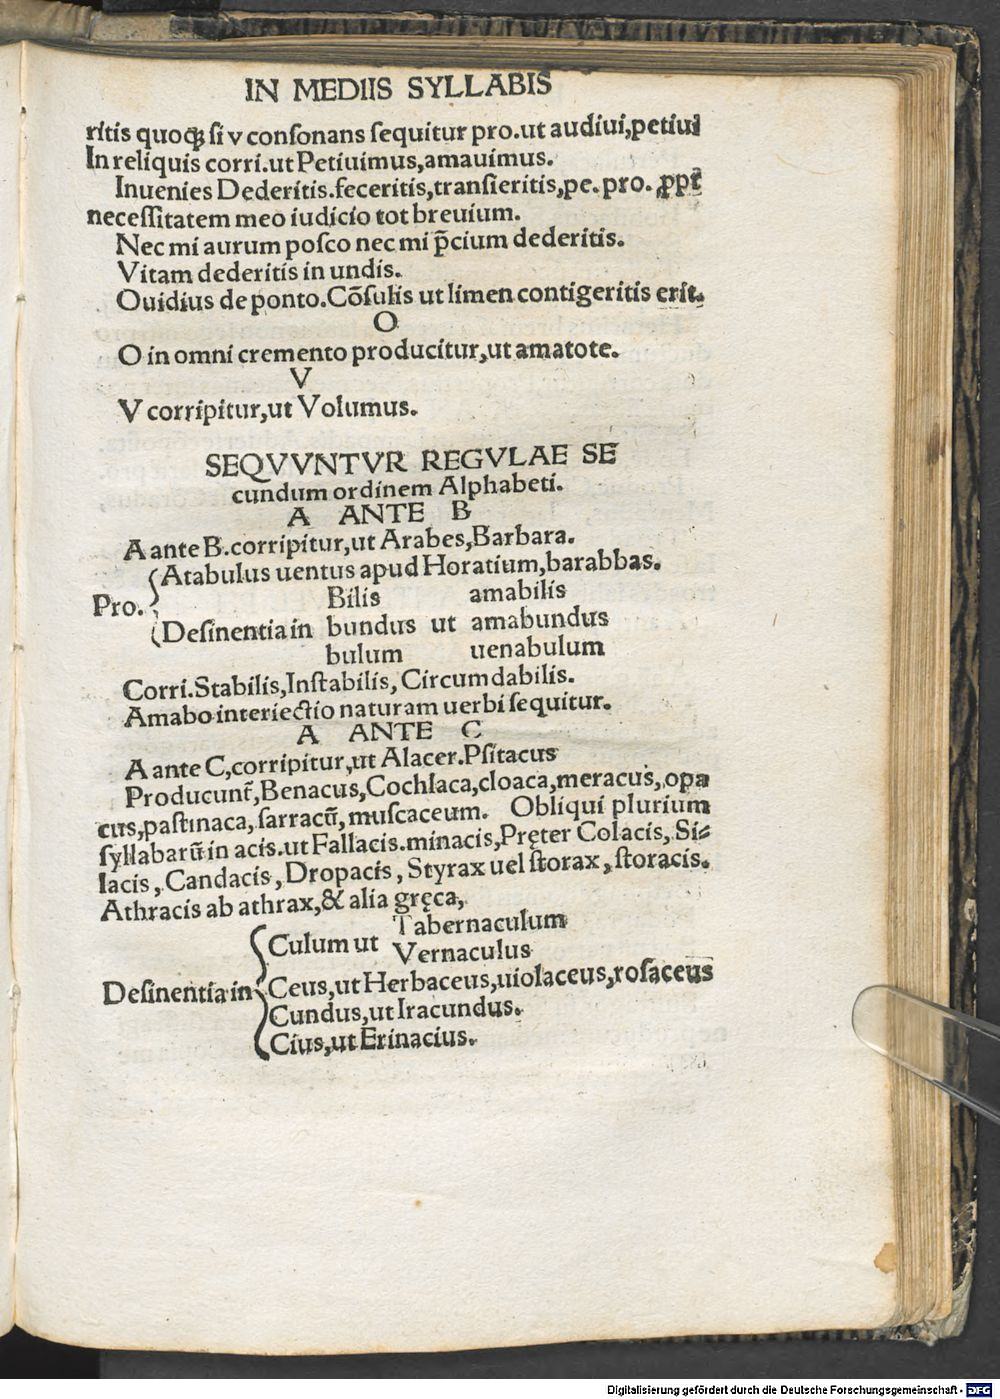 IN MEDIIS SYLLABIS
ritis quoqꝫ si v consonans sequitur pro.ut audiui,petiui
In reliquis corri.ut Petiuimus,amauimus.
Inuenies Dederitis.feceritis,transieritis,pe.pro.ꝓpt̄
necessitatem meo iudicio tot breuium.
Nec mi aurum posco nec mi p̄cium dederitis.
Vitam dederitis in undis.
Ouidius de ponto.Cōsulis ut limen contigeritis erit.
O
O in omni cremento producitur,ut amatote.
V
V corripitur,ut Volumus.
SEQVVNTVR REGVLAE SE
cundum ordinem Alphabeti.
A ANTE B
A ante B.corripitur,ut Arabes,Barbara.
Atabulus uentus apud Horatium,barabbas.
Bilis amabilis
Pro.
Desinentia in bundus ut amabundus
bulum uenabulum
Corri.Stabilis,Instabilis,Circumdabilis.
Amabo interiectio naturam uerbi sequitur.
A ANTE C
A ante C,corripitur,ut Alacer.Psitacus
Producunt̄,Benacus,Cochlaca,cloaca,meracus,opa
cus,pastinaca,sarracū,muscaceum. Obliqui plurium
syllabarū in acis.ut Fallacis.minacis,Pręter Colacis,Si⸗
lacis,Candacis,Dropacis,Styrax uel storax,storacis.
Athracis ab athrax,& alia gręca,
Tabernaculum
Culum ut Vernaculus
Desinentia in Ceus,ut Herbaceus,uiolaceus,rosaceus
Cundus,ut Iracundus.
Cius,ut Erinacius.
Digitalisierung gefördert durch die Deutsche Forschungsgemeinschaft - DFG